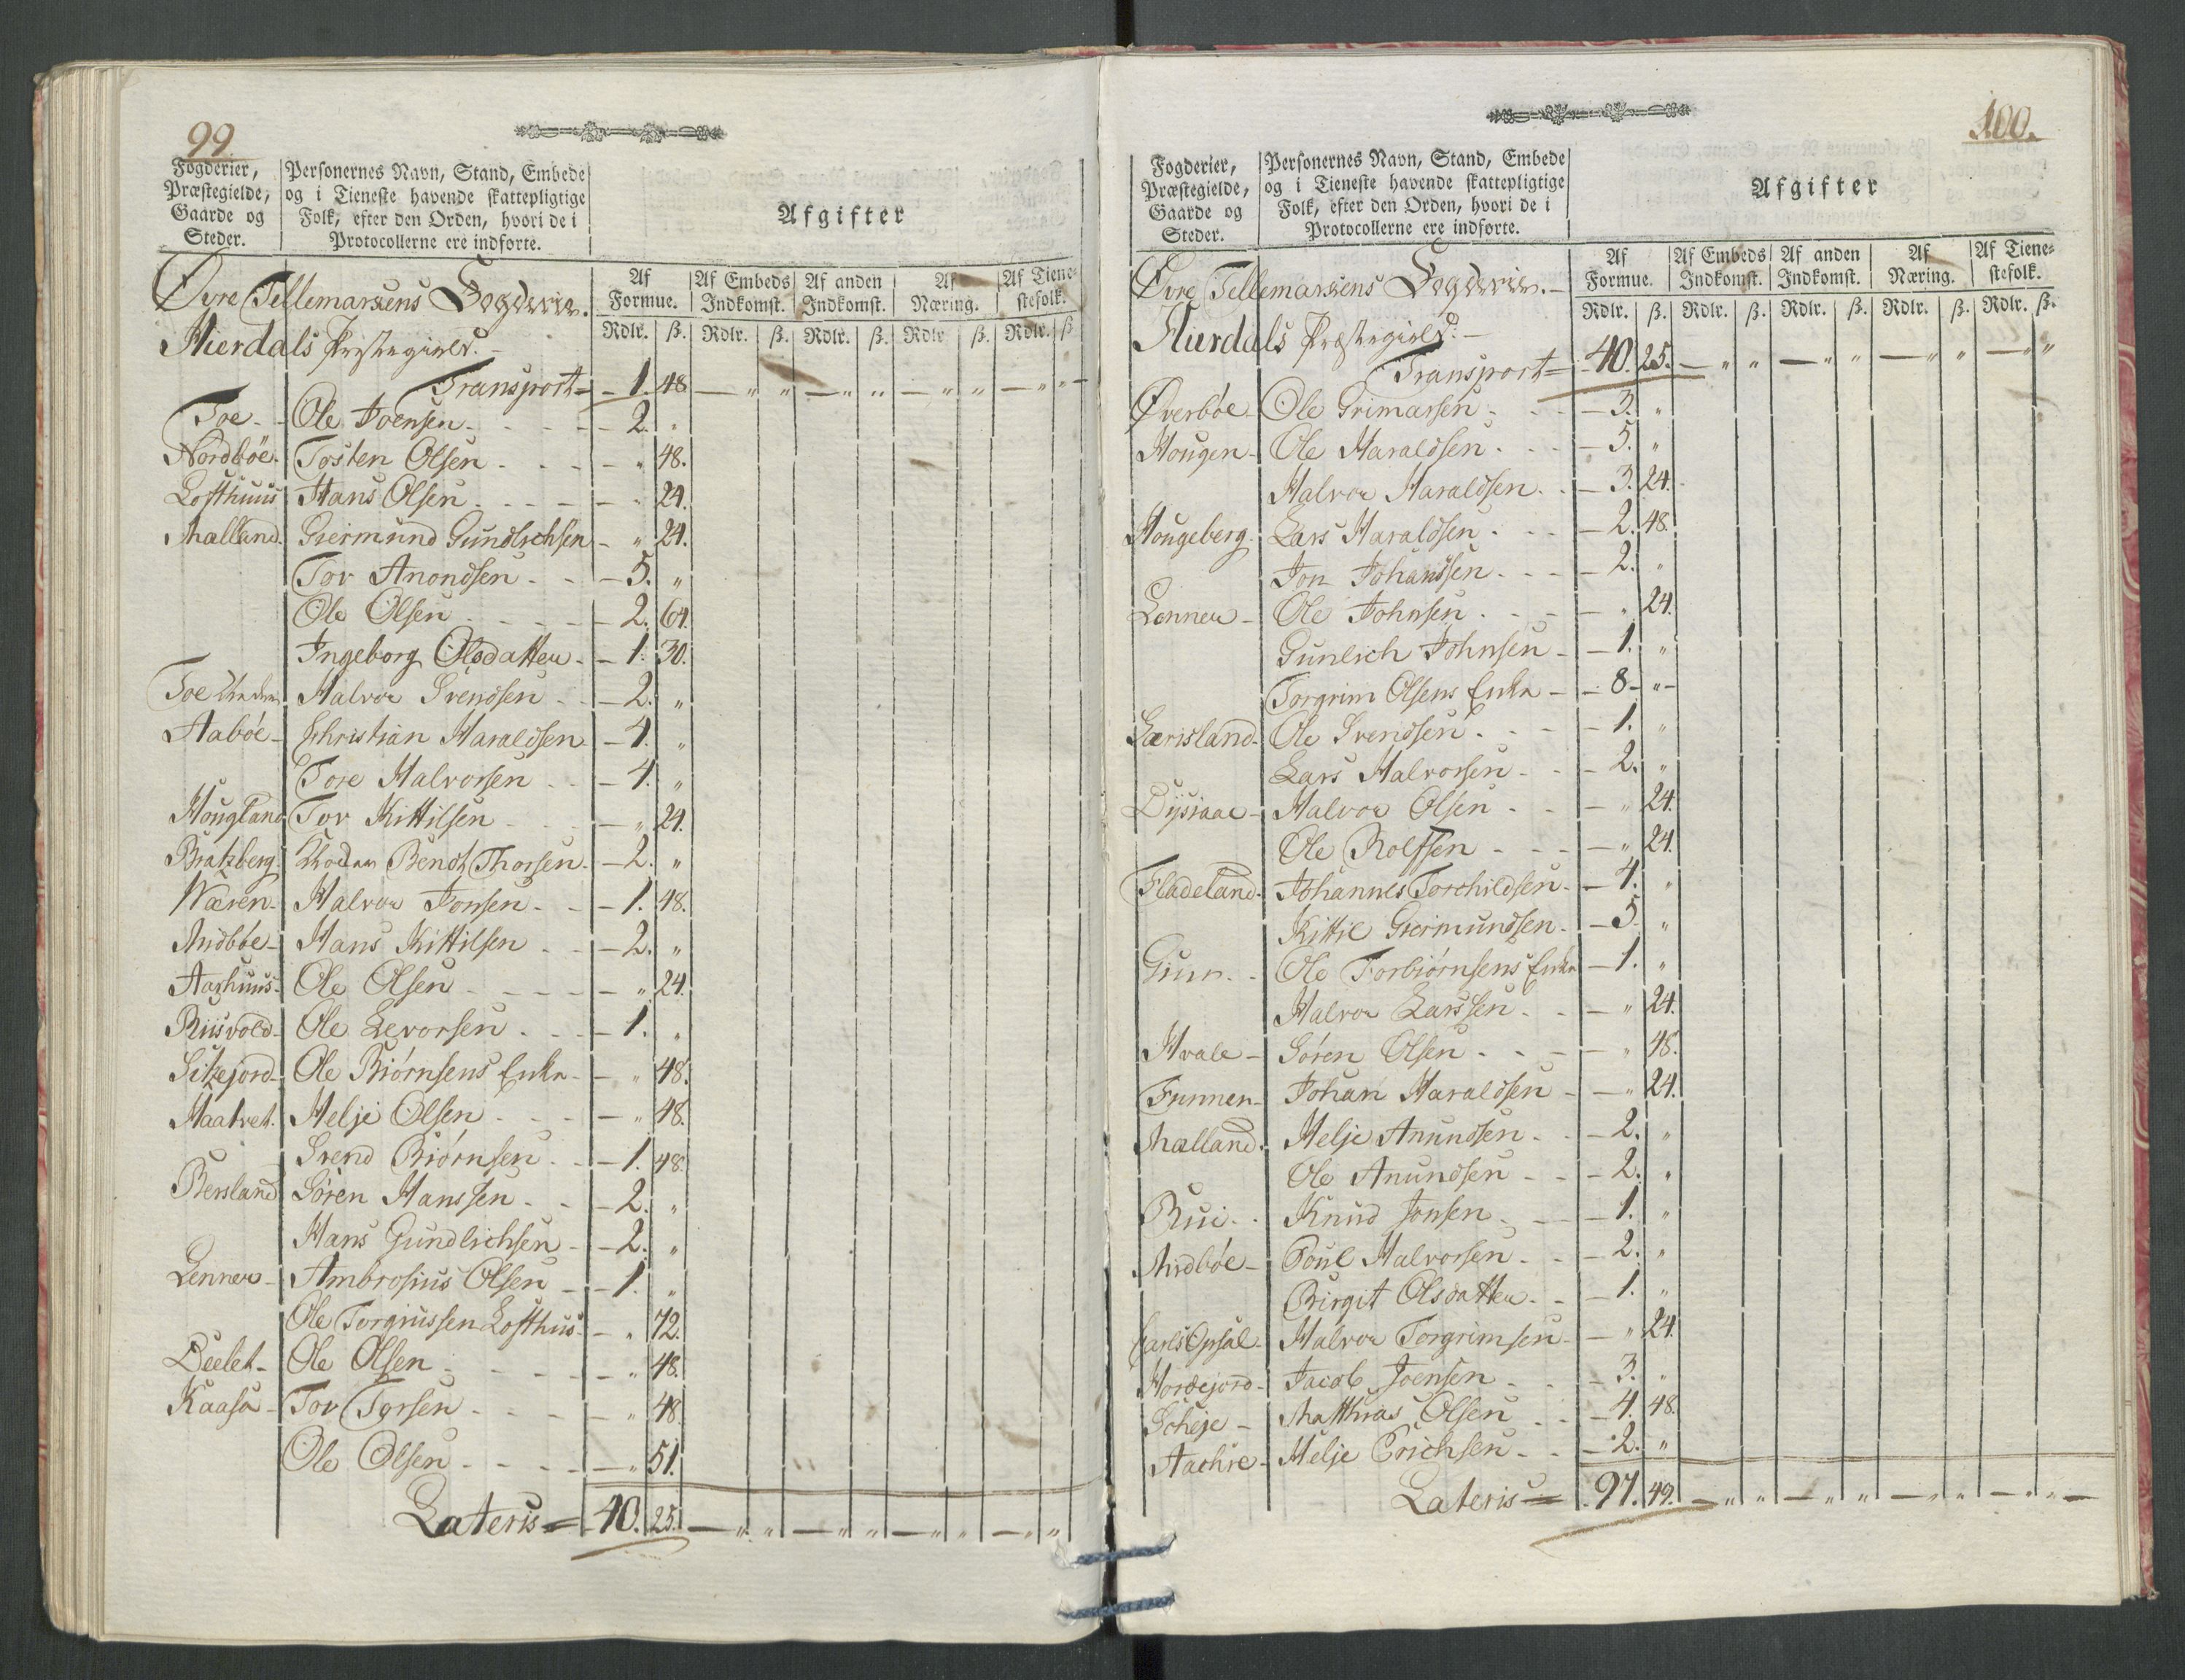 99.
Fogderier, Præstegielde, Gaarde og Steder.
Personernes Navn, Stand, Embede og i Tieneste havende skattepligtige Folk, efter den Orden, hvori de i Protocollerne ere indførte.
Afgifter
Af Formue. Af Embeds Indkomst. Af anden Indkomst. Af Næring. Af Tiene- stefolk.
Rdlr. ß. Rdlr. ß. Rdlr. ß. Rdlr ß. Rdlr. ß
Øvre Tellemarkens Fogderie.
Hierdals Præstegield.
Transport = 1. 48 — " " — " " — " " — " " —
Toe - Ole Joensen - 2. "
Nordbøe - Tosten Olsen - " 48.
Lofthuus Hans Olsen - " 24.
Mælland. Giermund Gundlichsen - " 24.
Tov Anondsen - 5. "
Ole Olsen - 2. 64.
Ingeborg Olsdatter - 1. 30.
Toe Halvor Svendsen - 2. "
Aabøe - Christian Haraldsen - 4. "
Tore Halvorsen - 4. "
Hougland Tov Kittilsen - " 24.
Bratzberg Bendt Thorsen - 2. "
Næren - Halvor Jonsen - 1. 48.
Midbøe - Hans Kittilsen - 2. "
Aashuus - Ole Olsen - " 24.
Riisvold - Ole Levorsen - 1. "
Sitzejord - Ole Biørnsens Enke - " 48.
Haatvet. Helje Olsen - " 48.
Svend Biørnsen - 1. 48.
Bersland Søren Hanssen - 2. "
Hans Gundlichsen - 2. "
Lenner - Ambrosius Olsen - 1. "
Ole Torgiussen Lofthus - " 72.
Deelet - Ole Olsen - " 48.
Kaasa - Tov Torsen - " 48.
Ole Olsen - " 51.
Lateris = 40. 25. — " " — " " — " " — " "
100.
Fogderier, Præstegielde, Gaarde og Steder.
Personernes Navn, Stand, Embede og i Tieneste havende skattepligtige Folk, efter den Orden, hvori de i Protocollerne ere indførte.
Afgifter
Af Formue. Af Embeds Indkomst. Af anden Indkomst. Af Næring. Af Tiene- stefolk.
Rdlr. ß. Rdlr. ß. Rdlr. ß. Rdlr. ß. Rdlr. ß.
Øvre Tellemarkens Fogderie. —
Hierdals Præstegield. —
Transport = 40. 25. — " " — " " — " " — " "
Øverbøe - Ole Grimarsen - 3. "
Hougen - Ole Haraldsen - 5. "
Halvor Haraldsen - 3. 24.
Hougeberg. Lars Haraldsen - 2. 48.
Jon Johandsen - 2. "
Lenner - Ole Johnsen - " 24.
Gunlich Johnsen - 1. "
Torgrim Olsens Enke - 8 - " -
Særisland. Ole Svendsen - 1. "
Lars Halvorsen - 2. "
Dysiaae - Halvor Olsen - " 24.
Ole Rolfsen - " 24.
Fladeland. Johannes Torchildsen - 4. "
Kittil Giermundsen - 5. "
Ole Torbiørnsens Enke - 1. "
Halvor Larssen - " 24.
Hvale - Søren Olsen - " 48.
Johan Haraldsen - " 24.
Mælland. Helje Anundsen - 2. "
Ole Anundsen - 2. "
Rui - Knud Jonsen - 1. "
Midbøe - Poul Halvorsen - 2. "
Birgit Olsdatter - 1. "
Carls Opsal - Halvor Torgrimsen - " 24.
Hordejord - Jacob Joensen - 3. "
Scheje - Matthias Olsen - 4. 48.
Aachre - Helje Erichsen - 2. "
Lateris = 97. 49. — " " — " " — " " — " " —